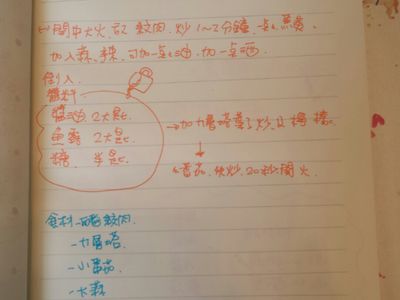 開中大火,放絞肉,炒1~2分鐘,
加入蒜、辣,可加一点油,加一点酒.
倒入
醬料.
醬油 2大匙.
魚露 2大匙.
糖 半匙.
→加九層塔葉子炒
↓
番茄,快炒20秒關火.
食料 - 豬絞肉
- 九層塔
- 小番茄
- 大蒜